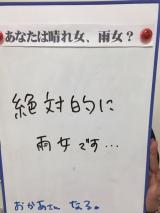 あなたは晴れ女、雨女？
絶対的に
雨女です…
おかあさん なる。